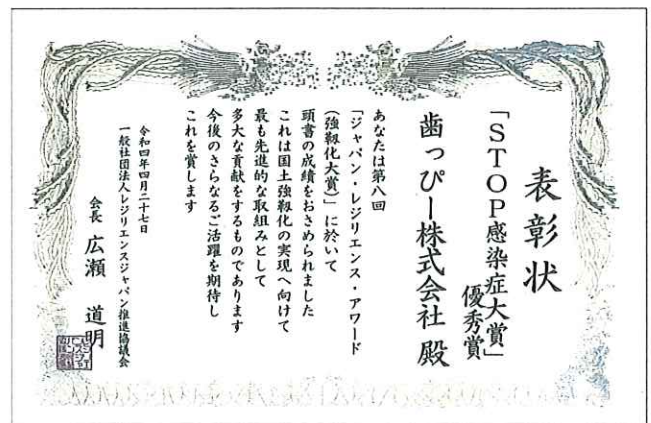 表彰状
「STOP感染症大賞」
優秀賞
歯っぴー株式会社 殿
あなたは第八回
「ジャパン・レジリエンス・アワード
(強靱化大賞)」に於いて
頭書の成績をおさめられました
これは国土強靱化の実現へ向けて
最も先進的な取組みとして
多大な貢献をするものであります
今後のさらなるご活躍を期待し
これを賞します
令和四年四月二十七日
一般社団法人レジリエンスジャパン推進協議会
会長 広瀬 道明